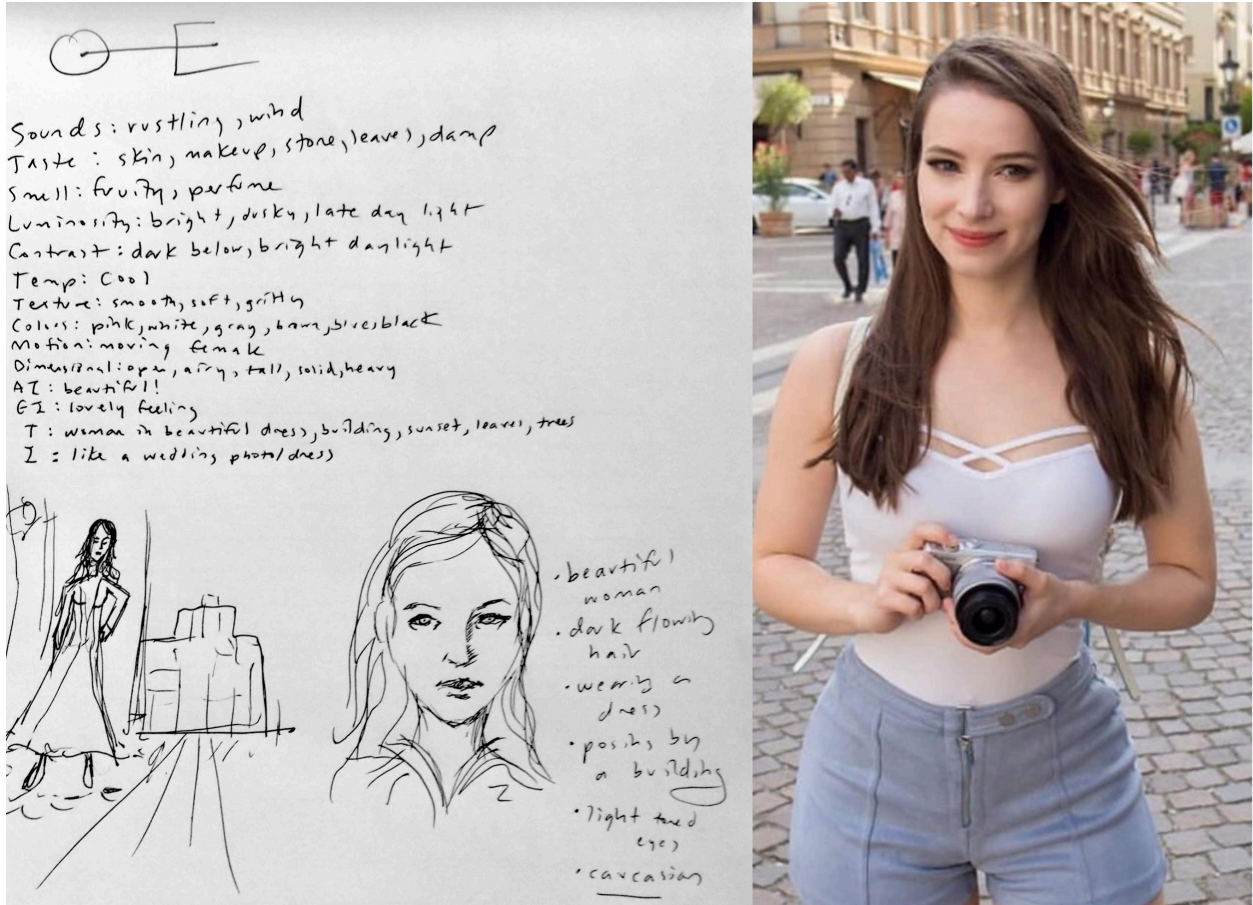 Sounds: rustling, wind
Taste: skin, makeup, stone, leaves, damp
Smell: fruity, perfume
Luminosity: bright, dusky, late day light
Contrast: dark below, bright daylight
Temp: Cool
Texture: smooth, soft, gritty
Colors: pink, white, gray, brown, blue, black
Motion: moving female
Dimensional: open, airy, tall, solid, heavy
AI: beautiful!
EI: lovely feeling
T: woman in beautiful dress, building, sunset, leaves, trees
I: like a wedding photo/dress
• beautiful
woman
• dark flowing
hair
• wearing a
dress
• posing by
a building
• light toned
eyes
• caucasian